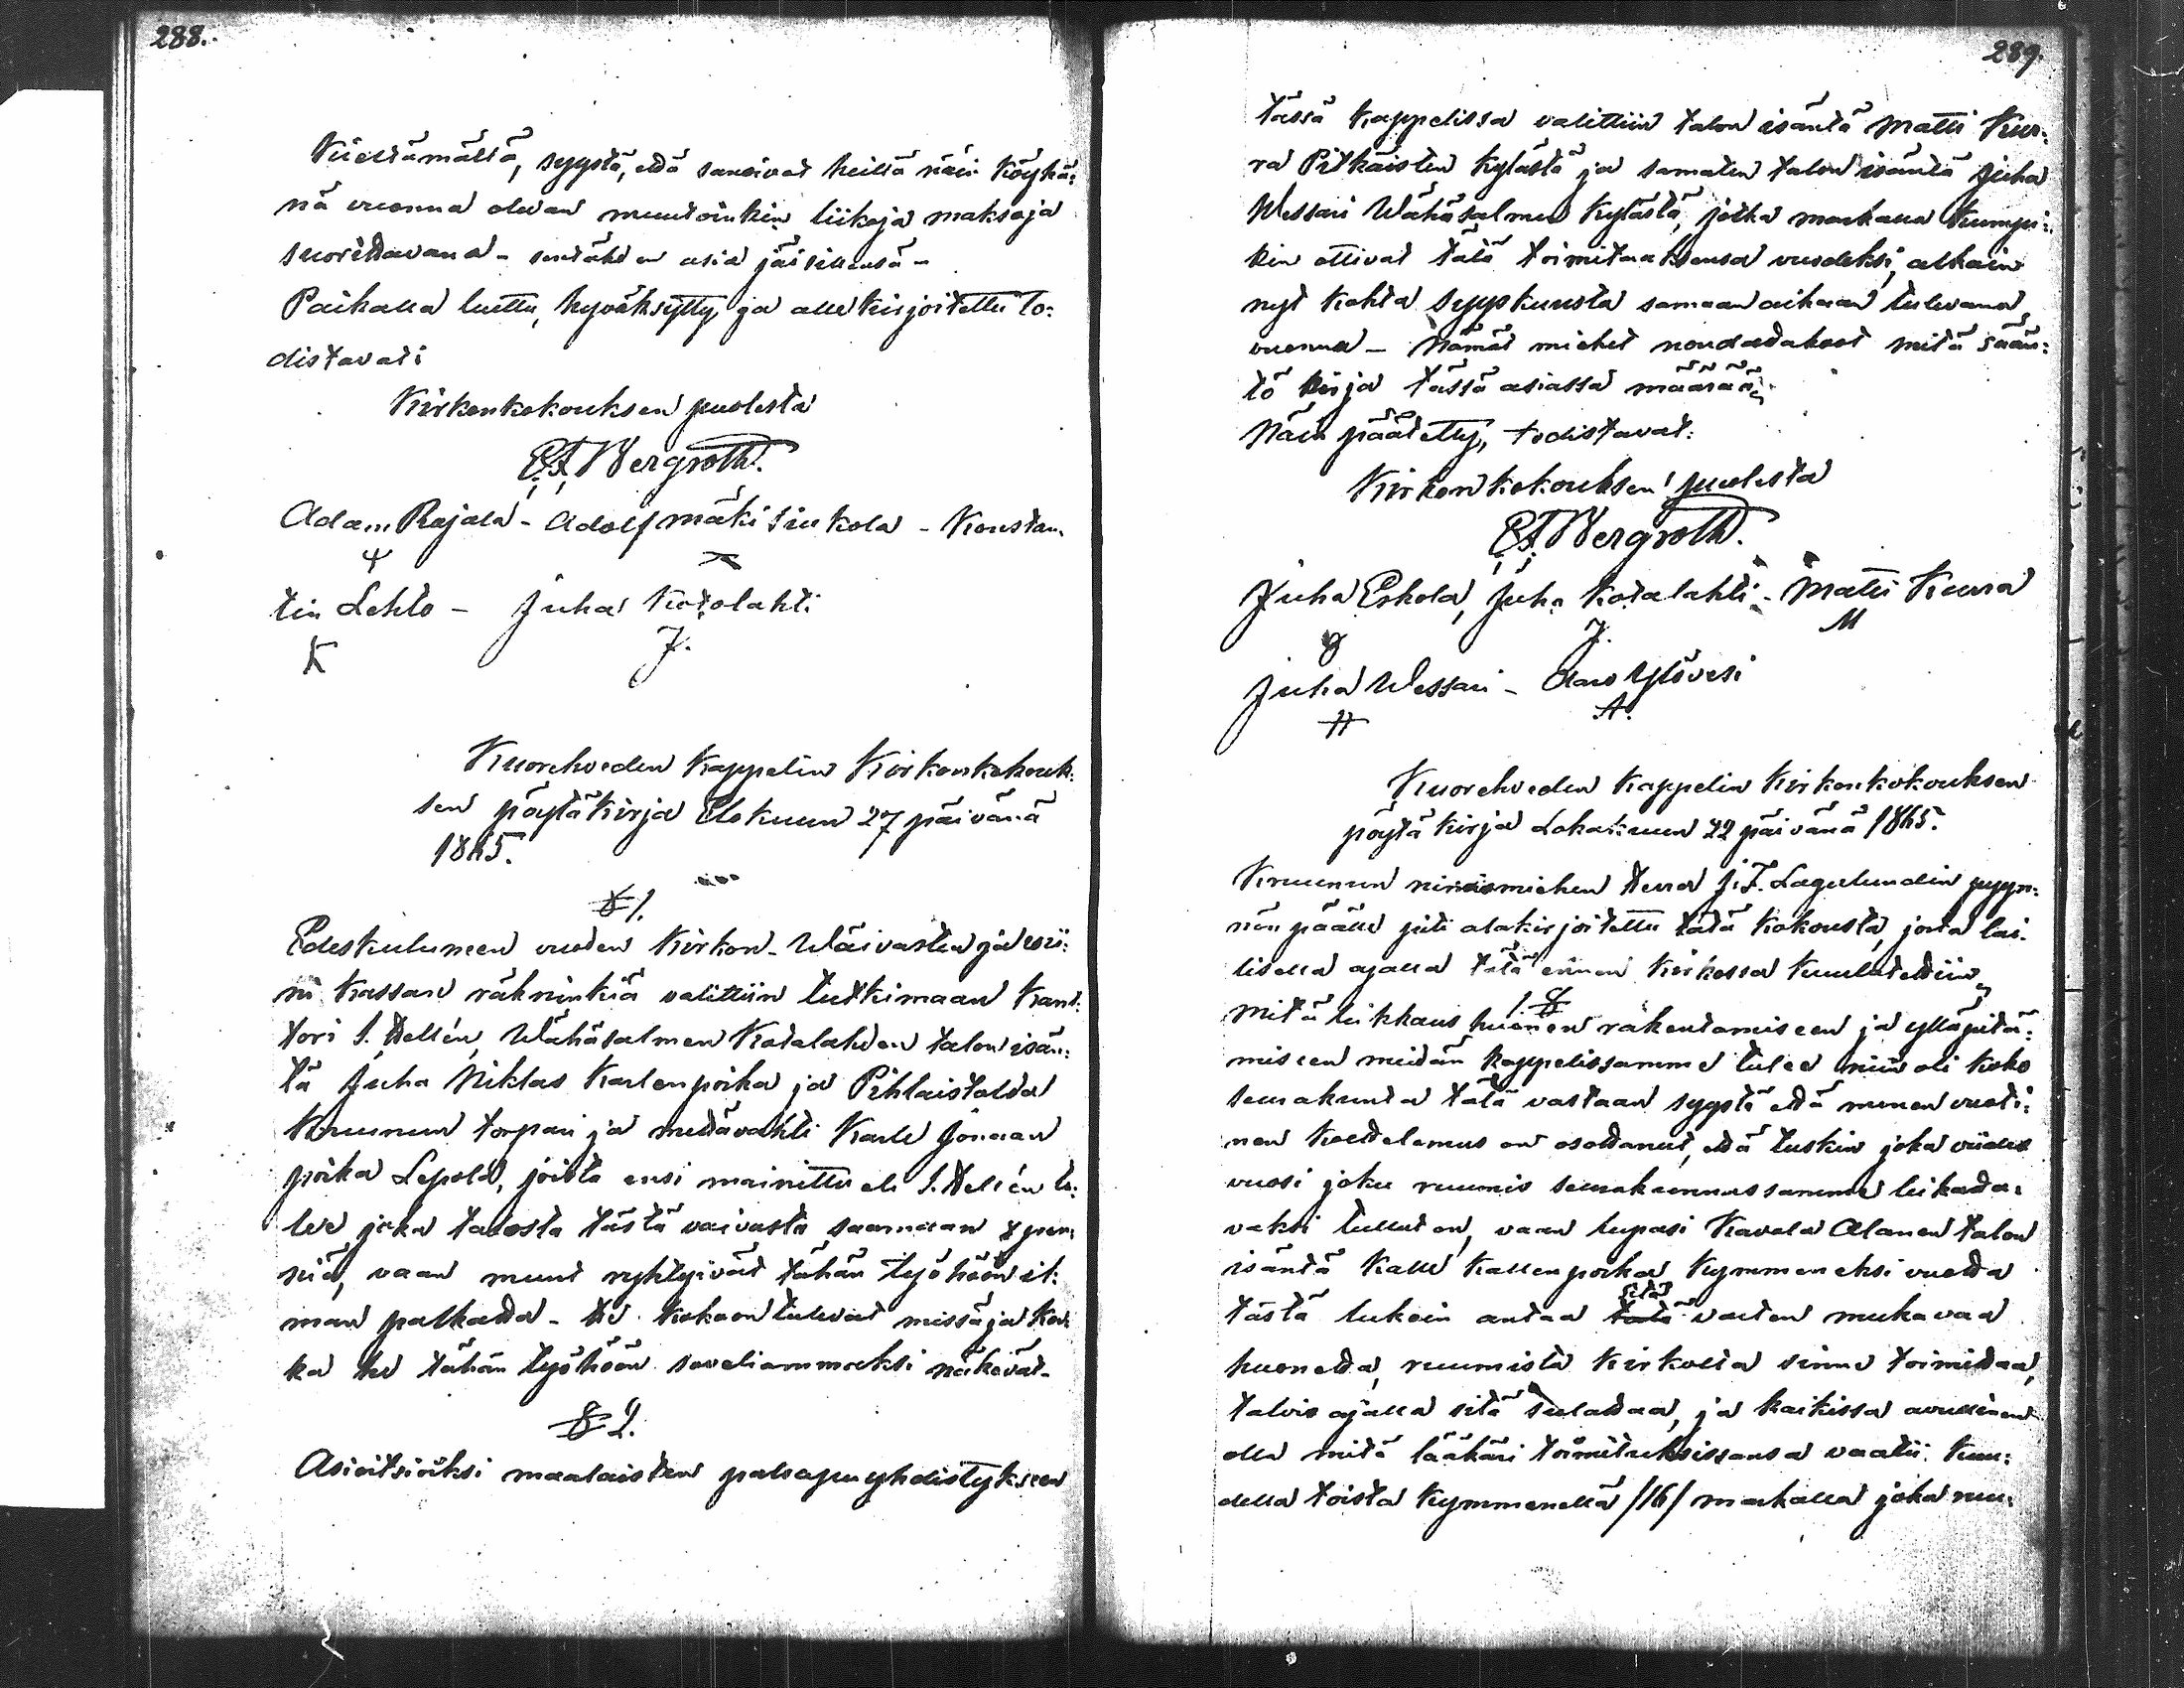 288.
Kiistämättä, syystä, että sanoivat heillä näin köyhä:
nä vuonna olevan muutoinkin liikoja maksoja
suorittavana - sentähden asia jäi sillensä -
Paikalla luettu, hyväksytty ja alle kirjoitettu to:
distavat:
Kirkonkokouksen puolesta
C.F. Bergroth.
Adam Rajala - Adolf Mäkisinkola - Konstan.
tin Lehto - Juha Kotolahti
K J.
Kuorehveden Kappelin Kirkonkokouk:
sen pöytäkirja Elokuun 27 päivänä
1865.
§ 1.
Edeskuluneen vuoden Kirkon- Waivasten ja viii:
ni kassan räkninkiä valittiin tutkimaan Kant:
tori I. Hellén, Wähäsalmen Kotalahden talon isän:
tä Juha Niklas Kallenpoika ja Pihlaistolda
Kruunun torpari ja mettävahti Kalle Jonaan
poika Lepold, joista ensi mainittu eli I. Hellén tu:
lee joka talosta tästä vaivasta saamaan 8 pen:
niä, vaan muut ryhtyivät tähän työhöön il:
man palkatta - He kokoon tulevat missä ja kos:
ka he tähän työhöön soveliammaksi näkevät -
§ 2.
Asioitsioiksi maalaisten paloapu yhdistykseen
289.
tässä Kappelissa valittiin talon isäntä Matti Kur:
ra Pitkäisten kylästä ja samaten talon isäntä Juha
Wessari Wähäsalmen kylästä, jotka molemat kumpi:
kin ottivat tätä toimitaaksensa vuodeksi, alkain
nyt kohta syyskuusta samaan aikaan tulevana
vuonna - Nämät miehet noudattakoot mitä sään:
tö kirja tässä asiassa määrää.
Näin päätetty, todistavat:
Kirkonkokouksen puolesta
C.F. Bergroth.
Juha Eskola, Juha Kotalahti - Matti Kurra
J. M
Juha Wessari - Aaro Ylövesi
H A.
Kuorehveden Kappelin Kirkonkokouksen
pöytäkirja Lokakuun 22 päivänä 1865.
Kruunun nimismiehen Herra J.F. Lagerlundin pyyn:
nön päälle piti alakirjoitettu tätä kokousta, josta lai:
lisella ajalla tätä ennen kirkossa kuulutettiin.
1 §
Mitä leikkaus huoneen rakentamiseen ja ylläpitä:
miseen meidän kappelissamme tulee niin oli koko
seurakunta tätä vastaan syystä että monen vuoti:
nen koettelemus on osottanut, että tuskin joka viides
vuosi joku ruumis seurakunnassamme leikatta:
vaksi tullut on, vaan lupasi Kavala Alanen talon
isäntä Kalle Kallenpoika kymmeneksi vuotta
tästä lukein antaa tätä sitä varten mukavaa
huonetta, ruumista kirkolta sinne toimittaa,
talvis ajalla sitä sulattaa, ja kaikissa avullinen
olla mitä lääkäri toimituksissansa vaatii. Kuu:
della toista kymmenellä /16/ markalla joka ruu: